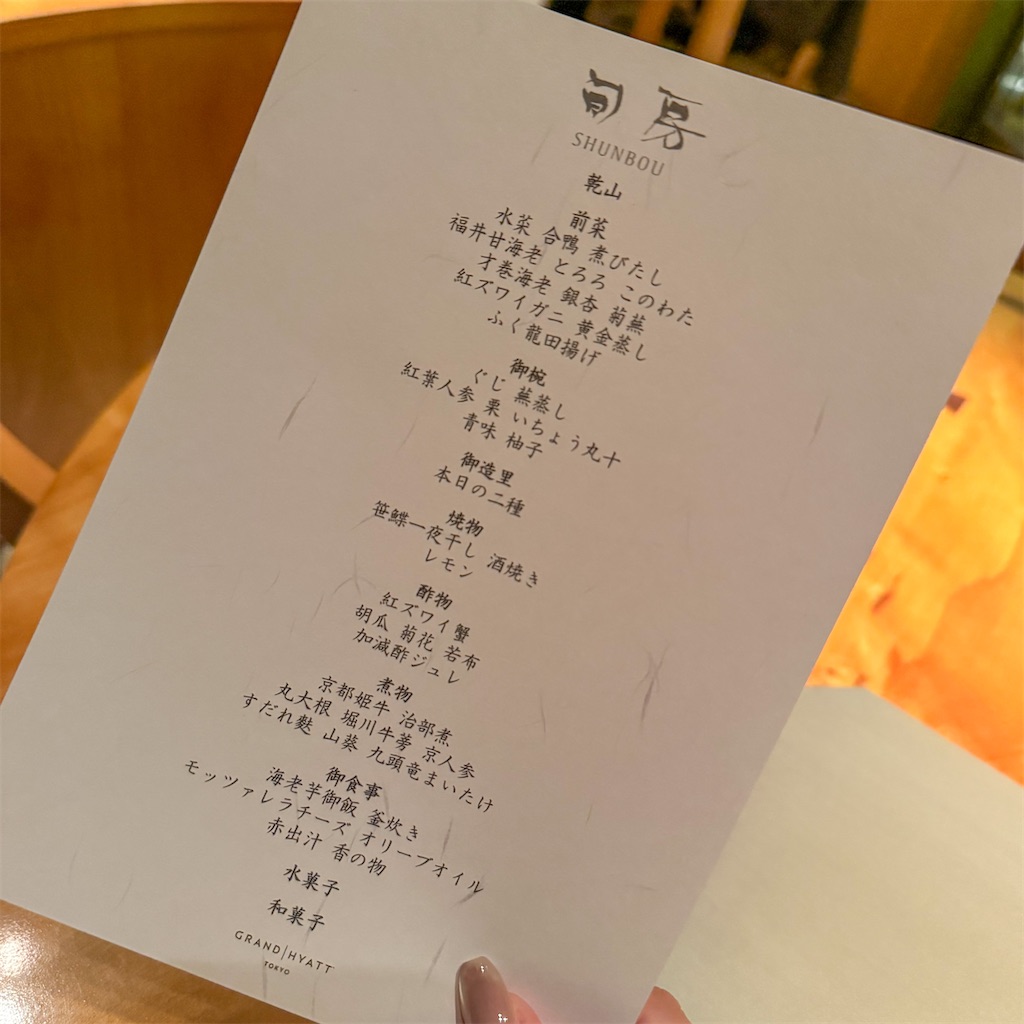 旬房
SHUNBOU
乾山
前菜
水菜 合鴨 煮びたし
福井甘海老 とろろ このわた
才巻海老 銀杏 菊蕪
紅ズワイガニ 黄金蒸し
ふく龍田揚げ
御椀
ぐじ 蕪蒸し
紅葉人参 栗 いちょう丸十
青味 柚子
御造里
本日の二種
焼物
笹鰈一夜干し 酒焼き
レモン
酢物
紅ズワイ蟹
胡瓜 菊花 若布
加減酢ジュレ
煮物
京都姫牛 治部煮
丸大根 堀川牛蒡 京人参
すだれ麩 山葵 九頭竜まいたけ
御食事
海老芋御飯 釜炊き
モッツァレラチーズ オリーブオイル
赤出汁 香の物
水菓子
和菓子
GRAND|HYATT
TOKYO